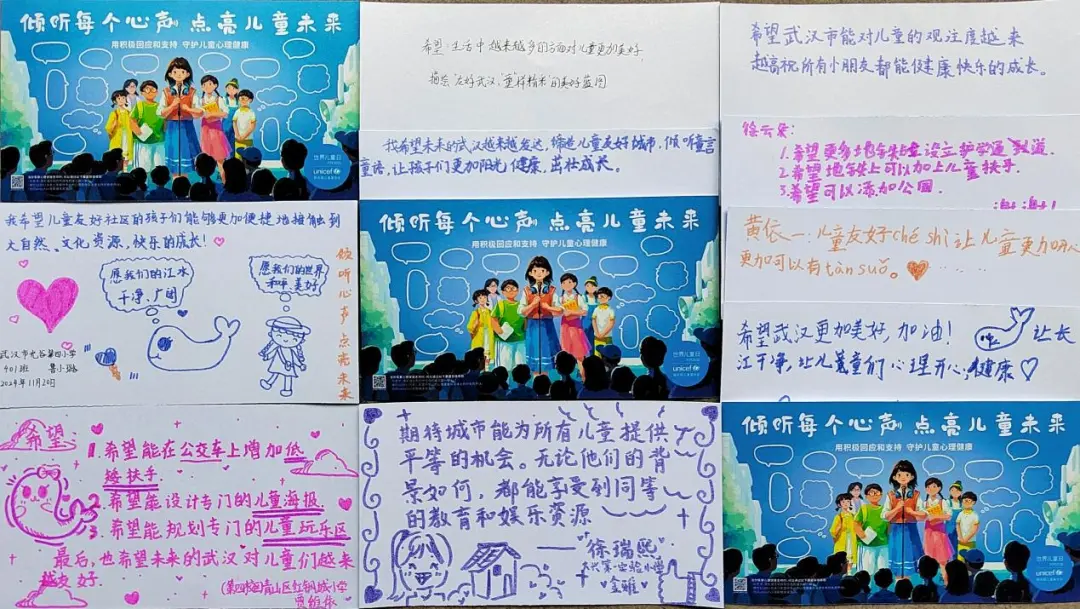 倾听每个心声 点亮儿童未来
用积极回应和支持 守护儿童心理健康
世界儿童日
unicef
我希望儿童友好社区的孩子们能够更加便捷地接触到
大自然、文化资源，快乐的成长！
愿我们的江水
干净、广阔
愿我们的世界
和平、美好
倾听心声 点亮未来
武汉市光谷第四小学
401班
2024年11月20日
希望：
1.希望能在公交车上增加低
矮扶手
2.希望能设计专门的儿童海报.
3.希望能规划专门的儿童玩乐区
最后，也希望未来的武汉对儿童们越来
越友好.
青山区红钢城小学
希望：生活中越来越多的方面对儿童更加美好，
描绘"友好武汉，童样精彩"的美好蓝图
我希望未来的武汉越来越发达，缔造儿童友好城市，倾听童言
童语，让孩子们更加阳光、健康、茁壮成长。
倾听每个心声 点亮儿童未来
用积极回应和支持 守护儿童心理健康
世界儿童日
unicef
期待城市能为所有儿童提供
平等的机会。无论他们的背
景如何，都能享受到同等
的教育和娱乐资源
——徐瑞熙
希望武汉市能对儿童的观注度越来
越高祝所有小朋友都能健康快乐的成长。
徐云朵：
1.希望更多地铁站设立护学通道.
2.希望地铁上可以加上儿童扶手.
3.希望可以添加公园.
谢谢！
黄依一：儿童友好ché shì让儿童更加开心
更加可以有tàn suǒ。
希望武汉更加美好，加油！
让长
江干净，让儿童们心理开心，健康
倾听每个心声 点亮儿童未来
用积极回应和支持 守护儿童心理健康
世界儿童日
unicef